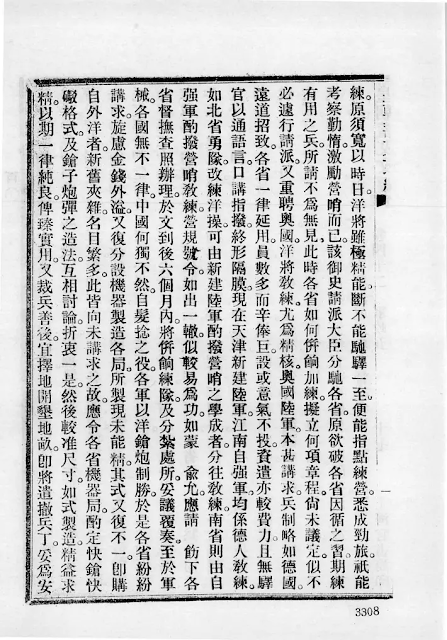 練原須寬以時日洋將雖極精能斷不能馳驛一至便能指點練營悉成勁旅祇能
考察勤惰激勵營哨而已該御史請派大臣分馳各省原欲破各省因循之習期練
有用之兵所請不爲無見此時各省如何併餉加練擬立何項章程尚未議定似不
必遽行請派又重聘奧國洋將教練尤爲精核奧國陸軍本甚講求兵制略如德國
遠道招致各省一律延用員數多而辛俸巨設或意氣不投資遣亦較費力且無驛
官以通語言口講指撥終形隔膜現在天津新建陸軍江南自强軍均係德人教練
如北省勇隊改練洋操可由新建陸軍酌撥營哨之學成者分往教練南省則由自
强軍酌撥營哨教練營規號令如出一轍似較易爲功如蒙 兪允應請 飭下各
省督撫查照辦理於文到後六個月內將併餉練隊及分紮處所妥議覆奏至於軍
械各國無不一律中國何獨不然自髮捻之役各軍以洋鎗炮制勝於是各省紛紛
講求旋慮金錢外溢又復分設機器製造各局所製現未能精其式又復不一卽購
自外洋者新舊夾雜名目繁多此皆向未講求之故應令各省機器局酌定快鎗快
礮格式及鎗子炮彈之造法互相討論折衷一是然後較准尺寸如式製造精益求
精以期一律純良俾臻實用又裁兵善後宜擇地開墾地畝卽將遣撤兵丁妥爲安
3308